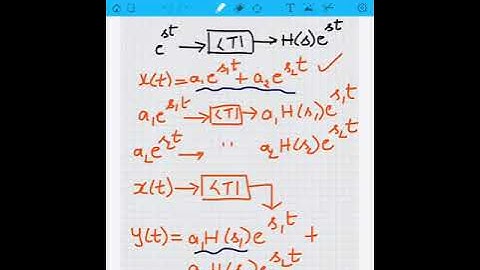 e^{st} → LTI → H(s)e^{st}
x(t) = a₁e^{s₁t} + a₂e^{s₂t} ✓
a₁e^{s₁t} → LTI → a₁H(s₁)e^{s₁t}
a₂e^{s₂t} → " a₂H(s₂)e^{s₂t}
x(t) → LTI
y(t) = a₁H(s₁)e^{s₁t} +
a₂H(s₂)e^{s₂t}